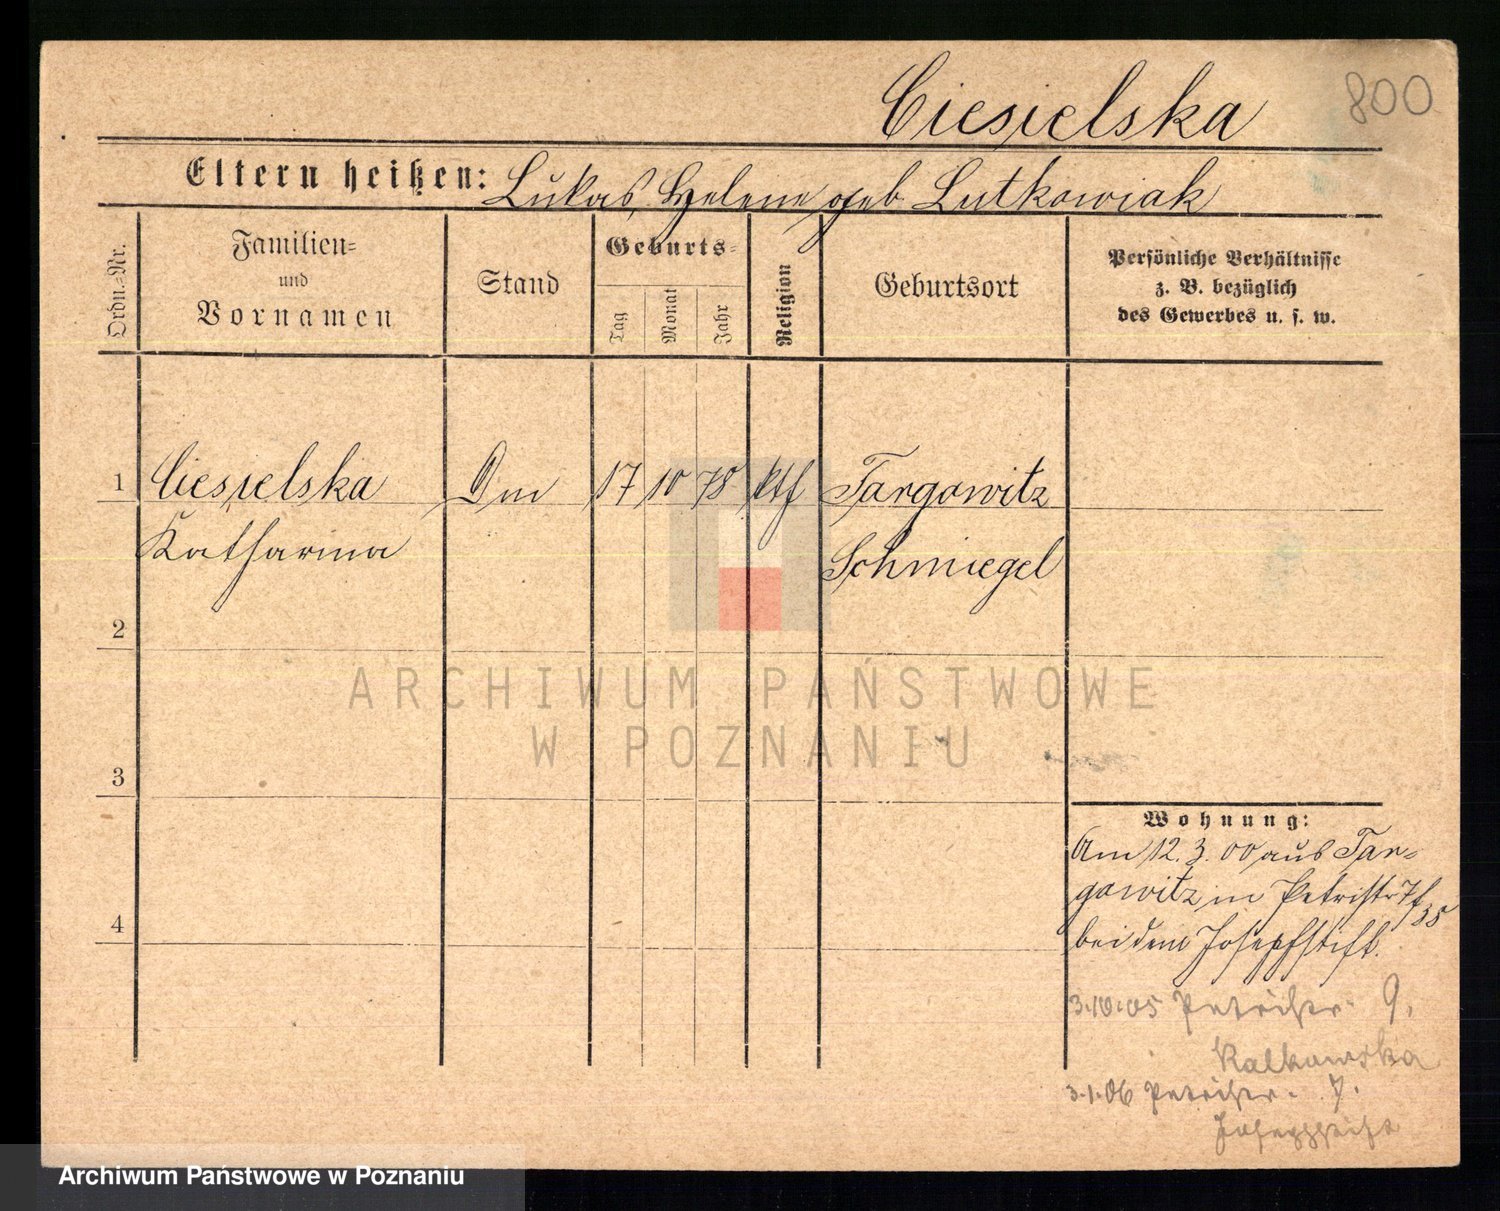 800
Ciesielska
Eltern heißen: Lukas, Helene geb. Lutkowiak
Ordn.-Nr.
Familien-
und
Vornamen
Stand
Geburts-
Tag
Monat
Jahr
Religion
Geburtsort
Persönliche Verhältnisse
z. B. bezüglich
des Gewerbes u. s. w.
1 Ciesielska 17 10 78 ktf Targowitz
Katharina Schmiegel
2
3
4
Wohnung:
Am 12.3.00 aus Tar-
gowitz in Petristr
bei dem Josephstift.
3.10.05 Petristr. 9.
Kalkowska
3.1.06 Petristr. 7.
Josephstift
ARCHIWUM PAŃSTWOWE
W POZNANIU
Archiwum Państwowe w Poznaniu